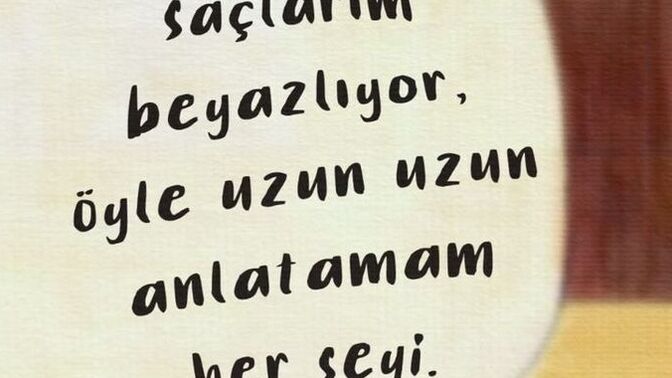 saçlarım
beyazlıyor,
öyle uzun uzun
anlatamam
her şeyi.